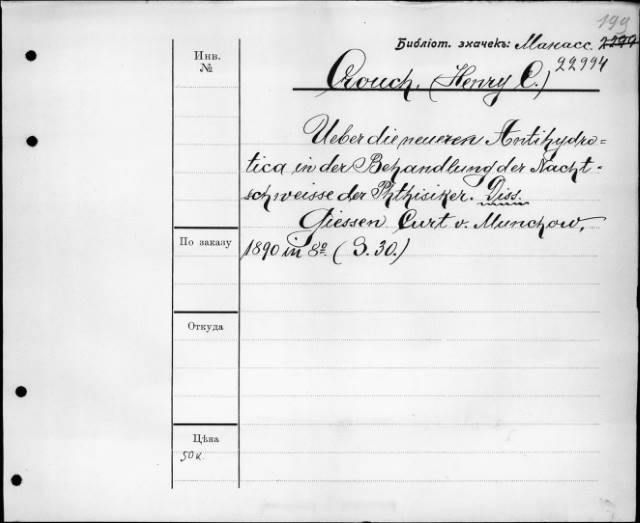 199
Библіот. значекъ: Манасс. 2299
22994
Инв.
№
Crouch, (Henry C.)
Ueber die neueren Antihydro=
tica in der Behandlung der Nacht-
schweisse der Phthisiker. Diss.
Giessen Curt v. Munchow,
1890 in 8º. (S. 30.)
По заказу
Откуда
Цѣна
50к.